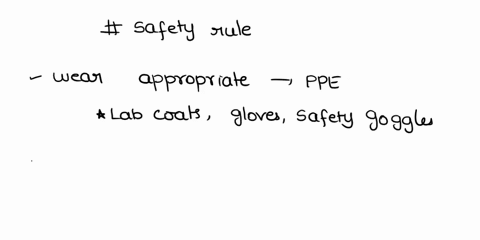 # Safety rule
- wear appropriate → PPE
* Lab coats, gloves, Safety goggles